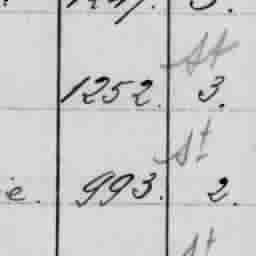 St
1252. 3.
St
e. 993. 2.
St